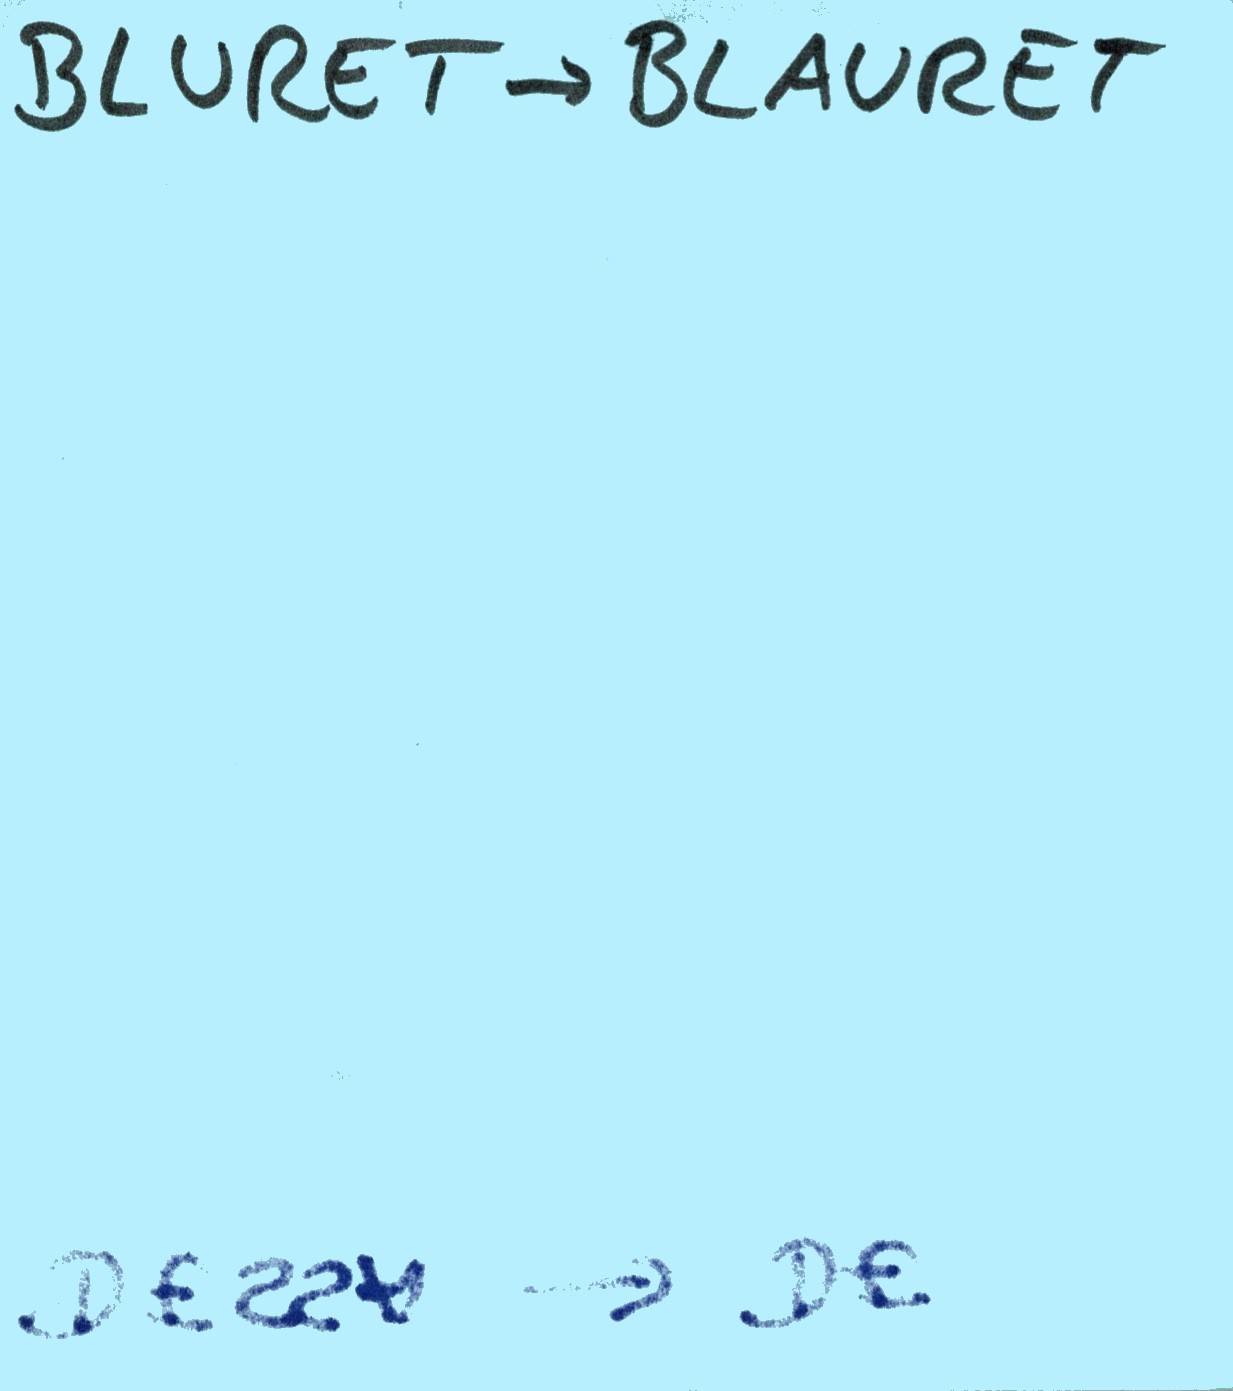 BLURET → BLAURET
DE224 → DE